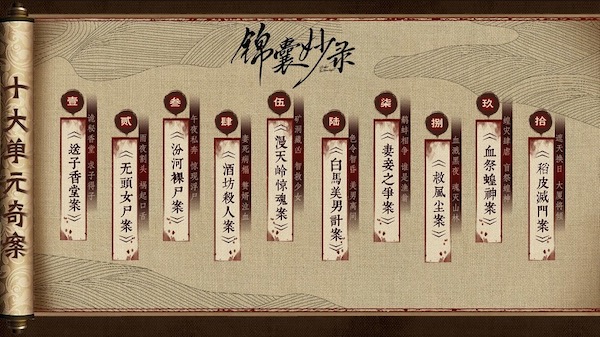 锦囊妙录
十大单元奇案
壹
《送子香堂案》
诡秘香堂 求子得子
贰
《无頭女尸案》
雨夜割头 祸起口舌
叁
《汾河裸尸案》
午夜私奔 惊现浮尸
肆
《酒坊殺人案》
妻死病榻 赘婿泣血
伍
《漫天岭惊魂案》
矿洞藏凶 智救少女
陆
《白馬美男計案》
色令智昏 美男离间
柒
《妻妾之爭案》
鹬蚌相争 谁是渔翁
捌
《救風尘案》
血溅黑夜 魂灭山林
玖
《血祭蝗神案》
蝗灾肆虐 盲祭蝗神
拾
《稻皮滅門案》
遮天换日 大厦将倾